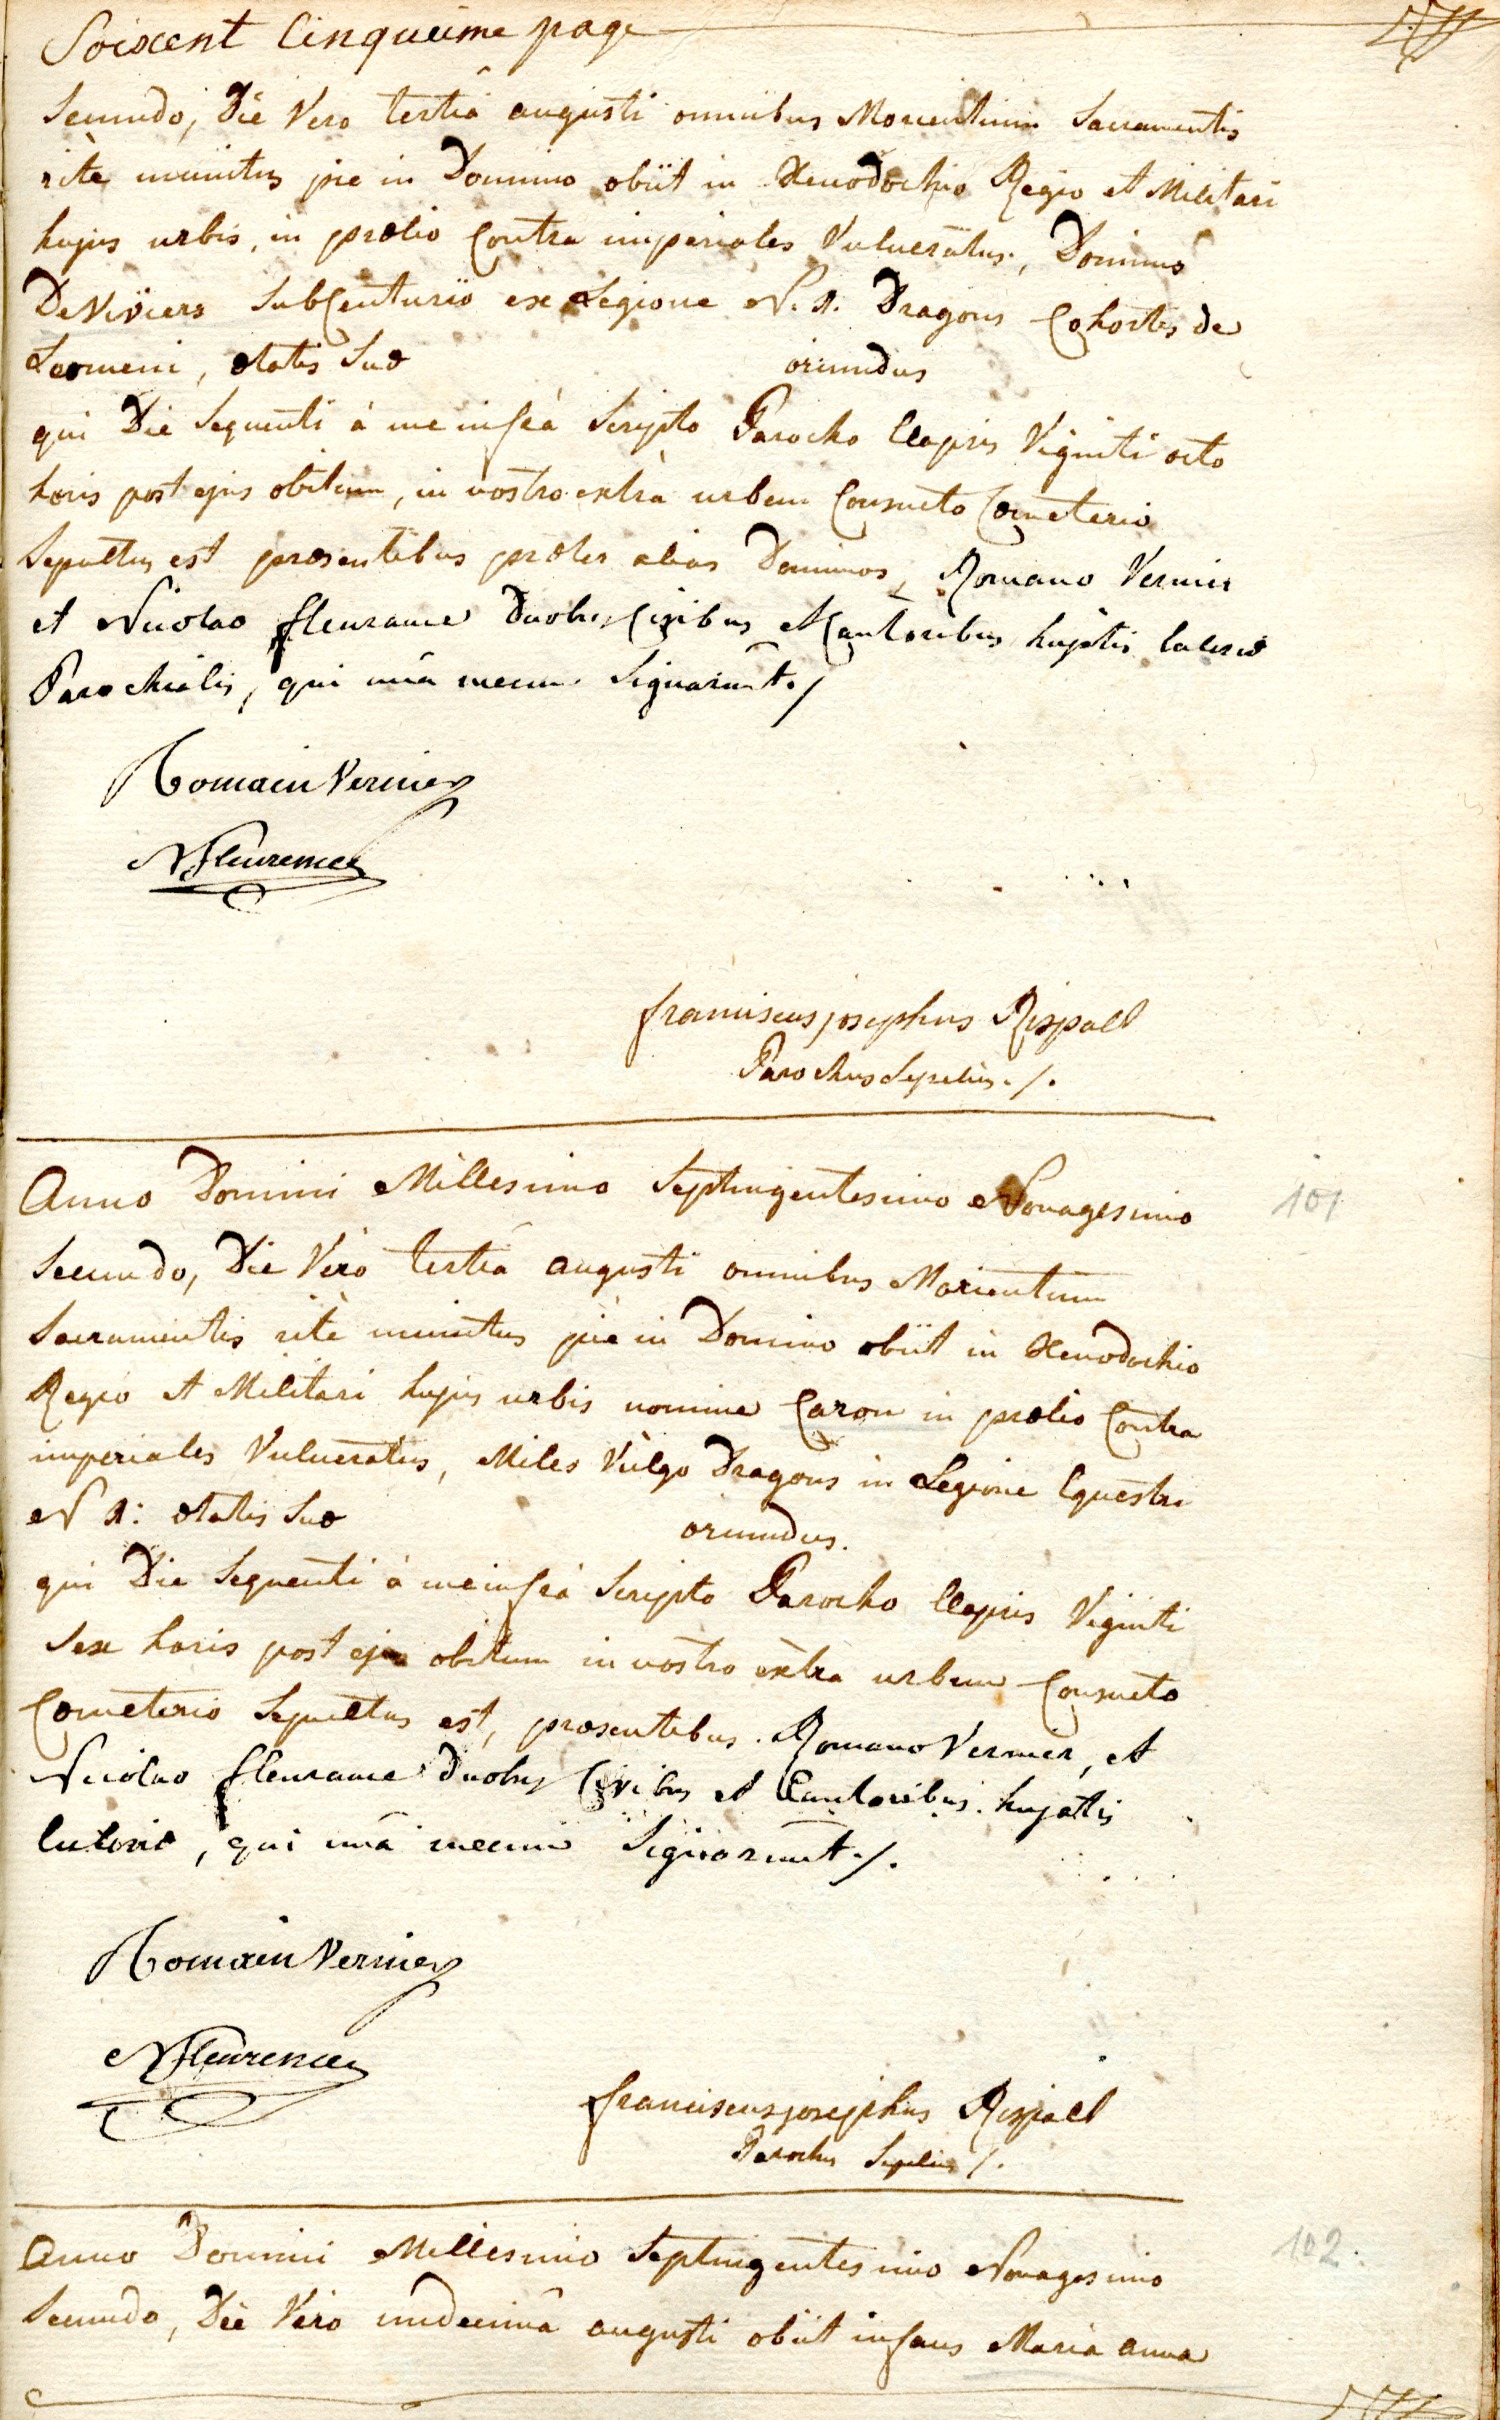 Soixent Cinqueime page
Secundo, Die Vero tertiâ augusti omnibus Morientium Sacramentis
ritè munitus pie in Domino obiit in Xenodochio Regio et Militari
hujus urbis, in prælio Contra imperiales Vulneratus, Dominus
De Viviers SubCenturio ex Legione N. 1. Dragons Cohortis de
Leomeni, ætatis Suæ oriundus
qui Die Sequenti à me infrà Scripto Parocho Elapsis Viginti octo
horis post ejus obitum, in nostro extrà urbem Consueto Cœmeterio
Sepultus est præsentibus præter alios Dominos, Romano Vernier
et Nicolao fleurance Duobus Civibus et Cantoribus hujatis Ecclesiæ
Parochialis, qui unà mecum Signarunt ./
Romain Vernier
N fleurence
franciscus josephus Rispall
Parochus Sepeliens ./.
Anno Domini Millesimo Septingentesimo Nonagesimo
101
Secundo, Die Vero tertiâ augusti omnibus Morientium
Sacramentis ritè munitus piè in Domino obiit in Xenodochio
Regio et Militari hujus urbis nomine Caron in prælio Contra
imperiales Vulneratus, Miles Vulgo Dragons in Legione Equestri
N 1: ætatis Suæ oriundus.
qui Die Sequenti à me infrà Scripto Parocho Elapsis Viginti
Sex horis post ejus obitum in nostro extra urbem Consueto
Cœmeterio Sepultus est, præsentibus Romano Vernier, et
Nicolao fleurance Duobus Civibus et Cantoribus hujatis
Ecclesiæ, qui unâ mecum Signarunt ./.
Romain Vernier
N fleurence
franciscus josephus Rispall
Parochus Sepeliens /.
Anno Domini Millesimo Septingentesimo Nonagesimo
102
Secundo, Die Vero undecimâ augusti obiit infans Maria anna